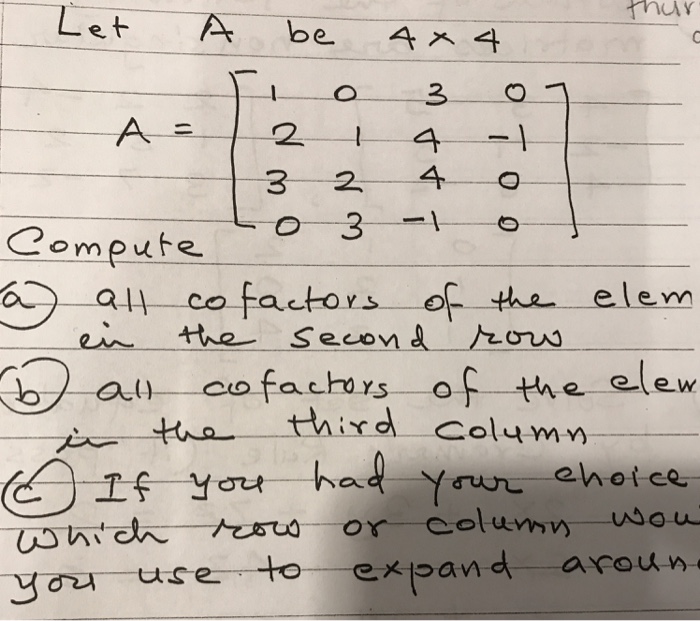 thur
Let A be 4 × 4
1 0 3 0
A = 2 1 4 -1
3 2 4 0
0 3 -1 0
Compute
a all cofactors of the elem
in the second row
b all cofactors of the elem
in the third column
c If you had your choice
which row or column wou
you use to expand aroun